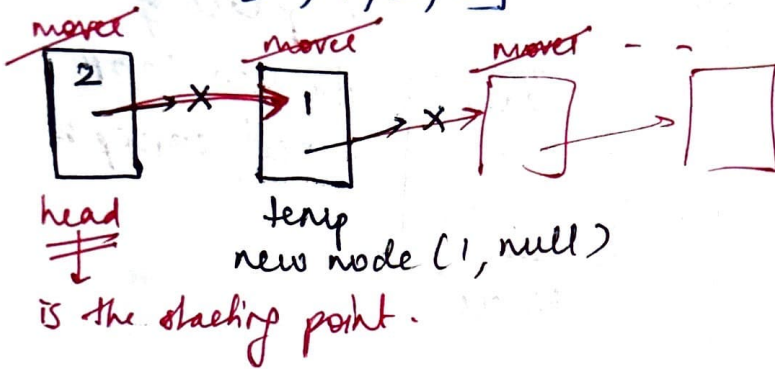 mover mover mover - -
2 x 1 x
head temp
new node (1, null)
is the starting point.